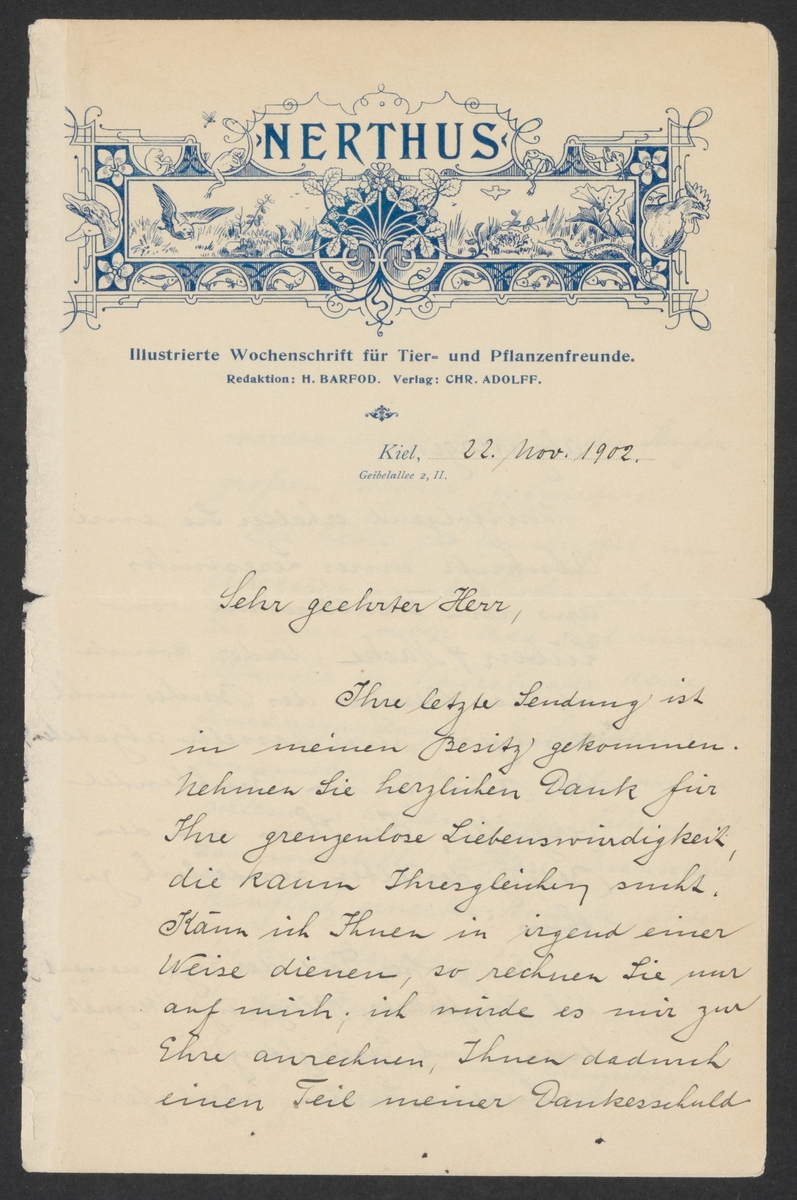 NERTHUS
Illustrierte Wochenschrift für Tier- und Pflanzenfreunde.
Redaktion: H. BARFOD. Verlag: CHR. ADOLFF.
Kiel, 22. Nov. 1902.
Geibelallee 2, II.
Sehr geehrter Herr,
Ihre letzte Sendung ist
in meinen Besitz gekommen.
Nehmen Sie herzlichen Dank für
Ihre grenzenlose Liebenswürdigkeit,
die kaum Ihresgleichen sucht.
Kann ich Ihnen in irgend einer
Weise dienen, so rechnen Sie nur
auf mich; ich würde es mir zur
Ehre anrechnen, Ihnen dadurch
einen Teil meiner Dankesschuld